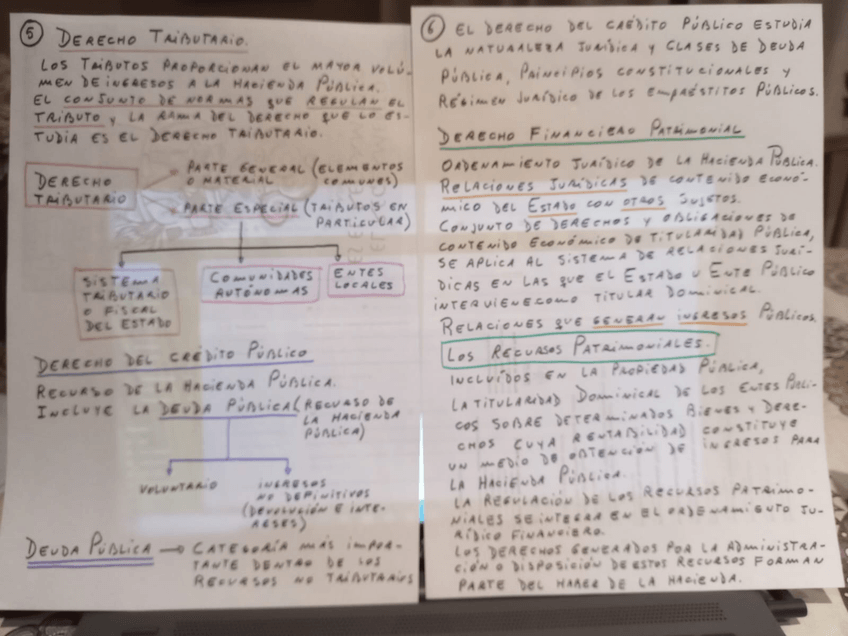 5 DERECHO TRIBUTARIO.
LOS TRIBUTOS PROPORCIONAN EL MAYOR VOLÚ-
MEN DE INGRESOS A LA HACIENDA PÚBLICA.
EL CONJUNTO DE NORMAS QUE REGULAN EL
TRIBUTO Y LA RAMA DEL DERECHO QUE LO ES-
TUDIA ES EL DERECHO TRIBUTARIO.
DERECHO
TRIBUTARIO
PARTE GENERAL (ELEMENTOS
O MATERIAL COMUNES)
PARTE ESPECIAL (TRIBUTOS EN
PARTICULAR)
SISTEMA
TRIBUTARIO
O FISCAL
DEL ESTADO
COMUNIDADES
AUTÓNOMAS
ENTES
LOCALES
DERECHO DEL CRÉDITO PÚBLICO
RECURSO DE LA HACIENDA PÚBLICA.
INCLUYE LA DEUDA PÚBLICA (RECURSO DE
LA HACIENDA
PÚBLICA)
VOLUNTARIO
INGRESOS
NO DEFINITIVOS
(DEVOLUCIÓN E INTE-
RESES)
DEUDA PÚBLICA → CATEGORÍA MÁS IMPOR-
TANTE DENTRO DE LOS
RECURSOS NO TRIBUTARIOS
6 EL DERECHO DEL CRÉDITO PÚBLICO ESTUDIA
LA NATURALEZA JURÍDICA Y CLASES DE DEUDA
PÚBLICA, PRINCIPIOS CONSTITUCIONALES Y
RÉGIMEN JURÍDICO DE LOS EMPRÉSTITOS PÚBLICOS.
DERECHO FINANCIERO PATRIMONIAL
ORDENAMIENTO JURÍDICO DE LA HACIENDA PÚBLICA.
RELACIONES JURÍDICAS DE CONTENIDO ECONÓ-
MICO DEL ESTADO CON OTROS SUJETOS.
CONJUNTO DE DERECHOS Y OBLIGACIONES DE
CONTENIDO ECONÓMICO DE TITULARIDAD PÚBLICA,
SE APLICA AL SISTEMA DE RELACIONES JURÍ-
DICAS EN LAS QUE EL ESTADO U ENTE PÚBLICO
INTERVIENE COMO TITULAR DOMINICAL.
RELACIONES QUE GENERAN INGRESOS PÚBLICOS.
LOS RECURSOS PATRIMONIALES.
INCLUÍDOS EN LA PROPIEDAD PÚBLICA,
LA TITULARIDAD DOMINICAL DE LOS ENTES PÚBLI-
COS SOBRE DETERMINADOS BIENES Y DERE-
CHOS CUYA RENTABILIDAD CONSTITUYE
UN MEDIO DE OBTENCIÓN DE INGRESOS PARA
LA HACIENDA PÚBLICA.
LA REGULACIÓN DE LOS RECURSOS PATRIMO-
NIALES SE INTEGRA EN EL ORDENAMIENTO JU-
RÍDICO FINANCIERO.
LOS DERECHOS GENERADOS POR LA ADMINISTRA-
CIÓN O DISPOSICIÓN DE ESTOS RECURSOS FORMAN
PARTE DEL HABER DE LA HACIENDA.